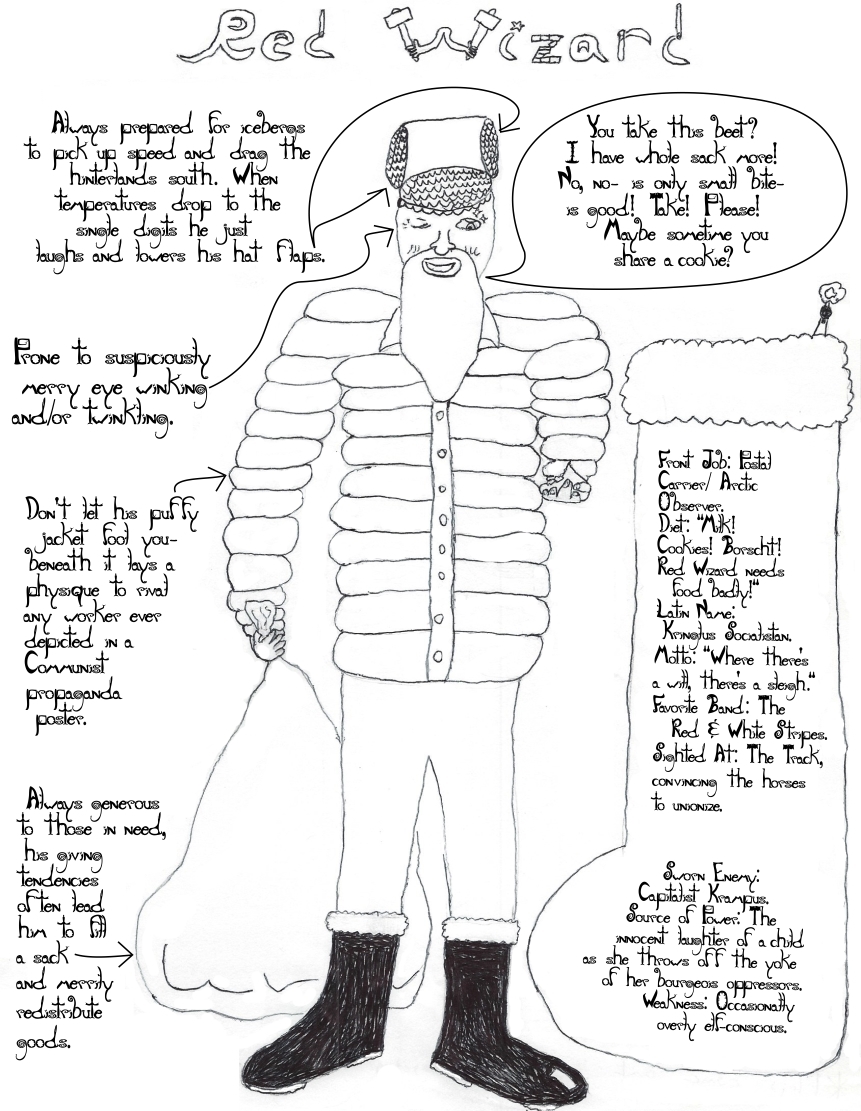 Red Wizard
Always prepared for icebergs
to pick up speed and drag the
hinterlands south. When
temperatures drop to the
single digits he just
laughs and lowers his hat flaps.
You take this beet?
I have whole sack more!
No, no- is only small bite-
is good! Take! Please!
Maybe sometime you
share a cookie?
Prone to suspiciously
merry eye winking
and/or twinkling.
Don't let his puffy
jacket fool you-
beneath it lays a
physique to rival
any worker ever
depicted in a
Communist
propaganda
poster.
Always generous
to those in need,
his giving
tendencies
often lead
him to fill
a sack
and merrily
redistribute
goods.
Front Job: Postal
Carrier/ Arctic
Observer.
Diet: "Milk!
Cookies! Borscht!
Red Wizard needs
food badly!"
Latin Name:
Kringlus Socialistan.
Motto: "Where there's
a will, there's a sleigh."
Favorite Band: The
Red & White Stripes.
Sighted At: The Track,
convincing the horses
to unionize.
Sworn Enemy:
Capitalist Krampus.
Source of Power: The
innocent laughter of a child
as she throws off the yoke
of her bourgeois oppressors.
Weakness: Occasionally
overly elf-conscious.